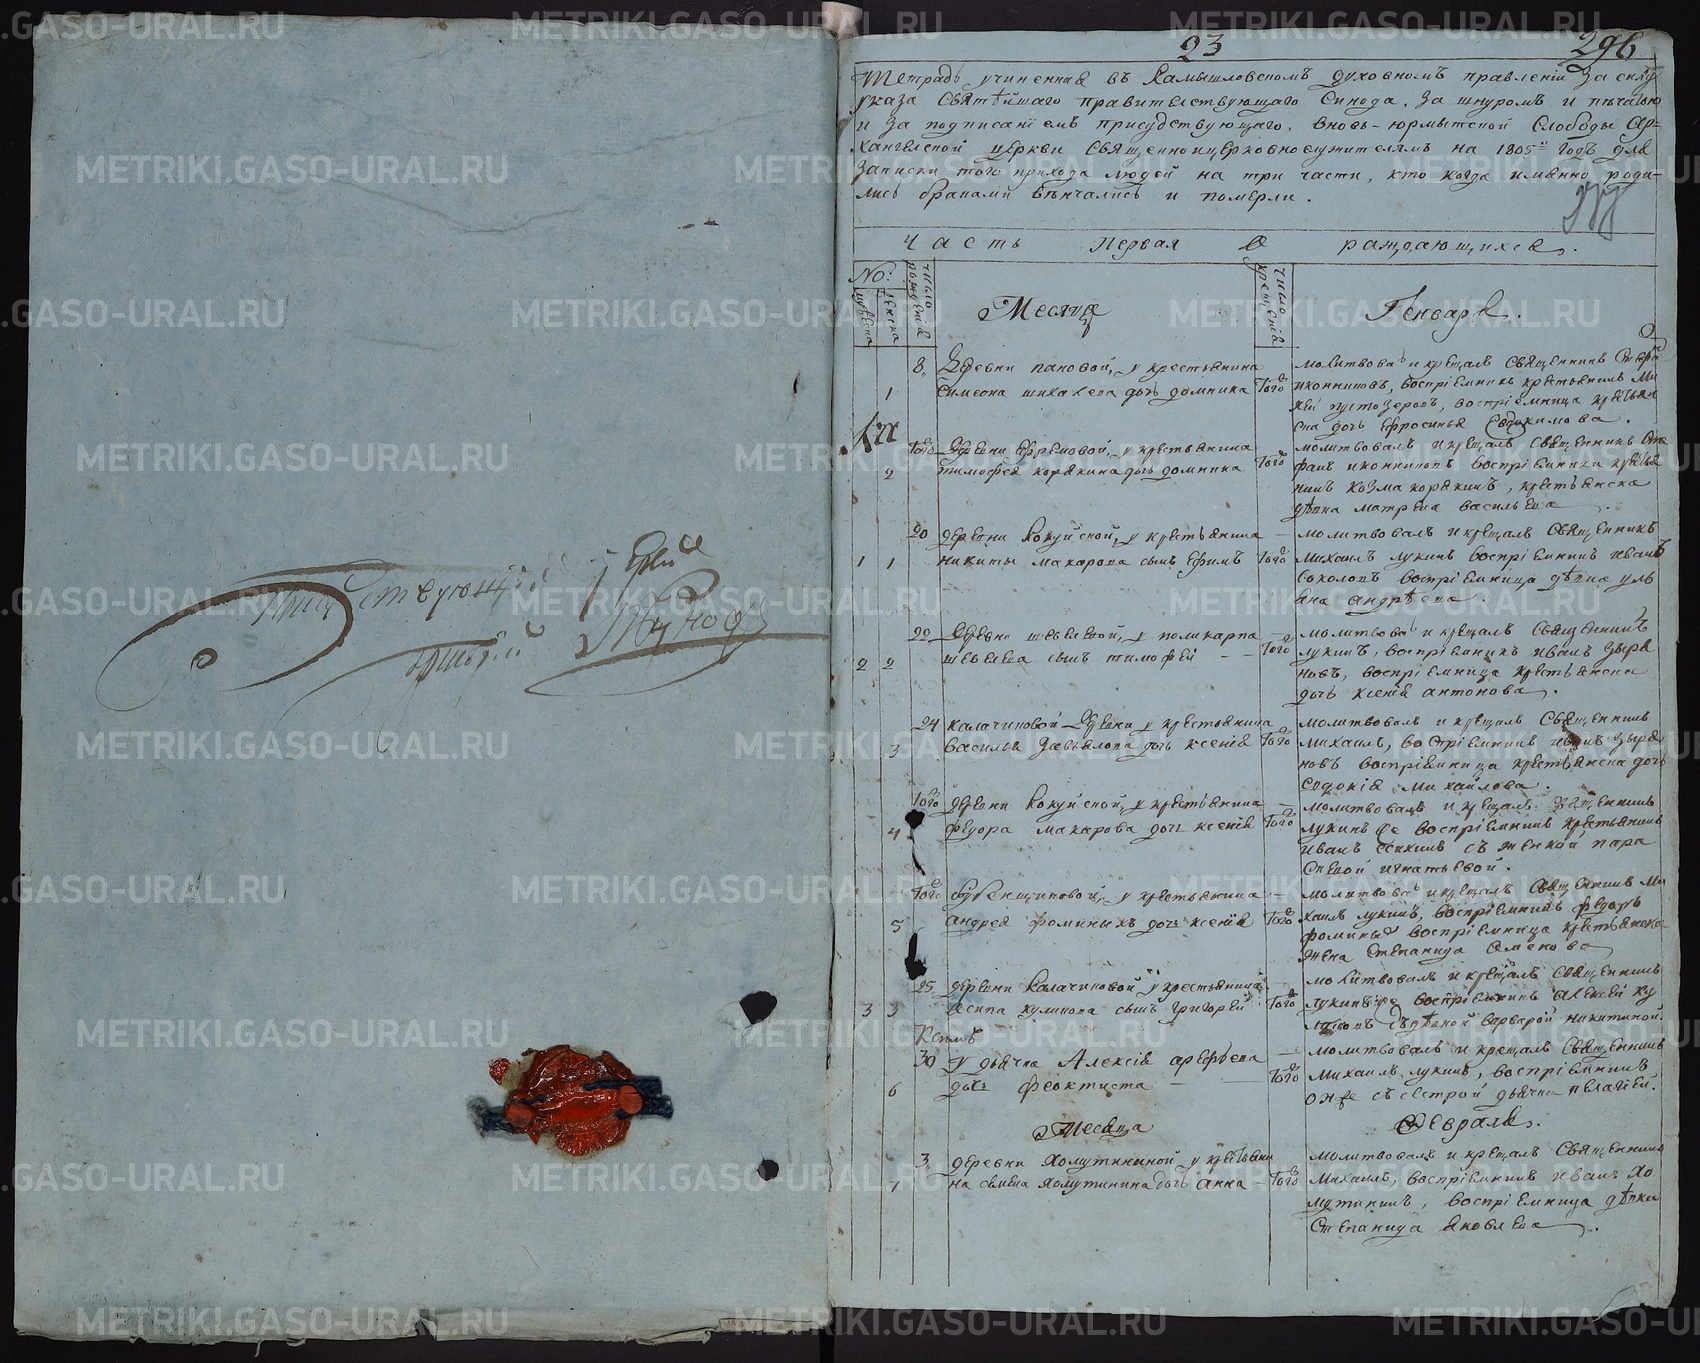 23
296
Тетрадь учиненная въ Камышловскомъ духовномъ правленіи за силу
указа Святѣйшаго правительствующаго Синода, за шнуромъ и печатью
и за подписаніемъ присудствующаго, вновь-юрмытской слободы Ар=
хангелской церкви Священноицерковнослужителямъ на 1805й годъ для
записки того прихода людей на три части, кто когда имянно роди-
лись браками вѣнчались и померли.
Часть Первая О раждающихся.
№:
мужеска
женска
число рожденія
Месяца
число крещенія
Генваря.
8. Деревни пановой, у крестьянина
1 Симеона дочь домника Того
молитвовалъ и крещалъ священникъ Стефа
иконниковъ, воспріемникъ крестьянинъ Ми
хей пустозеровъ, воспріемница крестьян
ска дочь ефросинья Евдокимова.
Того Деревни Ефремовой, у крестьянина
2 Тимофея корякина дочь домника Того
молитвовалъ и крещалъ священникъ Сте
фанъ иконниковъ воспріемники крестья
нинъ козма корякинъ, крестьянска
дѣвка матрена васильева
20 деревни Кокуйской, у крестьянина
1 1 никиты макарова сынъ Ефимъ Того
молитвовалъ и крещалъ Священникъ
Михаилъ лукинъ воспріемникъ иванъ
Соколовъ воспріемница дѣвка уль
яна андрѣева.
22. Деревни у поликарпа
2 2 сынъ тимофей Того
молитвовалъ и крещалъ Священникъ
лукинъ, воспріемникъ иванъ зыря
новъ, воспріемница крестьянска
дочь ксенія антонова.
24 калачиковой деревни у крестьянина
3 василья Завьялова дочь ксенія Того
молитвовалъ и крещалъ Священникъ
михаилъ, воспріемникъ иванъ зыря
новъ воспріемница крестьянска дочь
Евдокія михайлова.
Того деревни Кокуйской, у крестьянина
4 федора макарова дочь ксенія Того
молитвовалъ и крещалъ священникъ
лукинъ же воспріемникъ крестьянинъ
иванъ съ женкой пара
сковой игнатьевой.
Того бубенщиковой, у крестьянина
5 андрея фоминыхъ дочь ксенія Того
молитвовалъ и крещалъ Священникъ Ми
хаилъ лукинъ, воспріемникъ федоръ
фоминых воспріемница крестьянска
жена Степанида Семенова
25. деревни Калачиковой у крестьянина
3 3 Осипа куликова сынъ григорей Того
молитвовалъ и крещалъ Священникъ
лукинъ же воспріемникъ алексей ку
ликовъ съ дѣвкой варварой никитиной.
30 у дьячка Алексія арефьева
6 дочь феоктиста Того
молитвовалъ и крещалъ Священникъ
михаилъ лукинъ, воспріемникъ
онже съ сестрой дьячка пелагіей.
Месяца
Февраля.
3. деревни Холуткиной у крестьяни
1 на Холуткина дочь анна Того
молитвовалъ и крещалъ Священникъ
михаилъ, воспріемникъ иванъ хо
луткинъ, воспріемница дѣвка
Степанида яковлева.